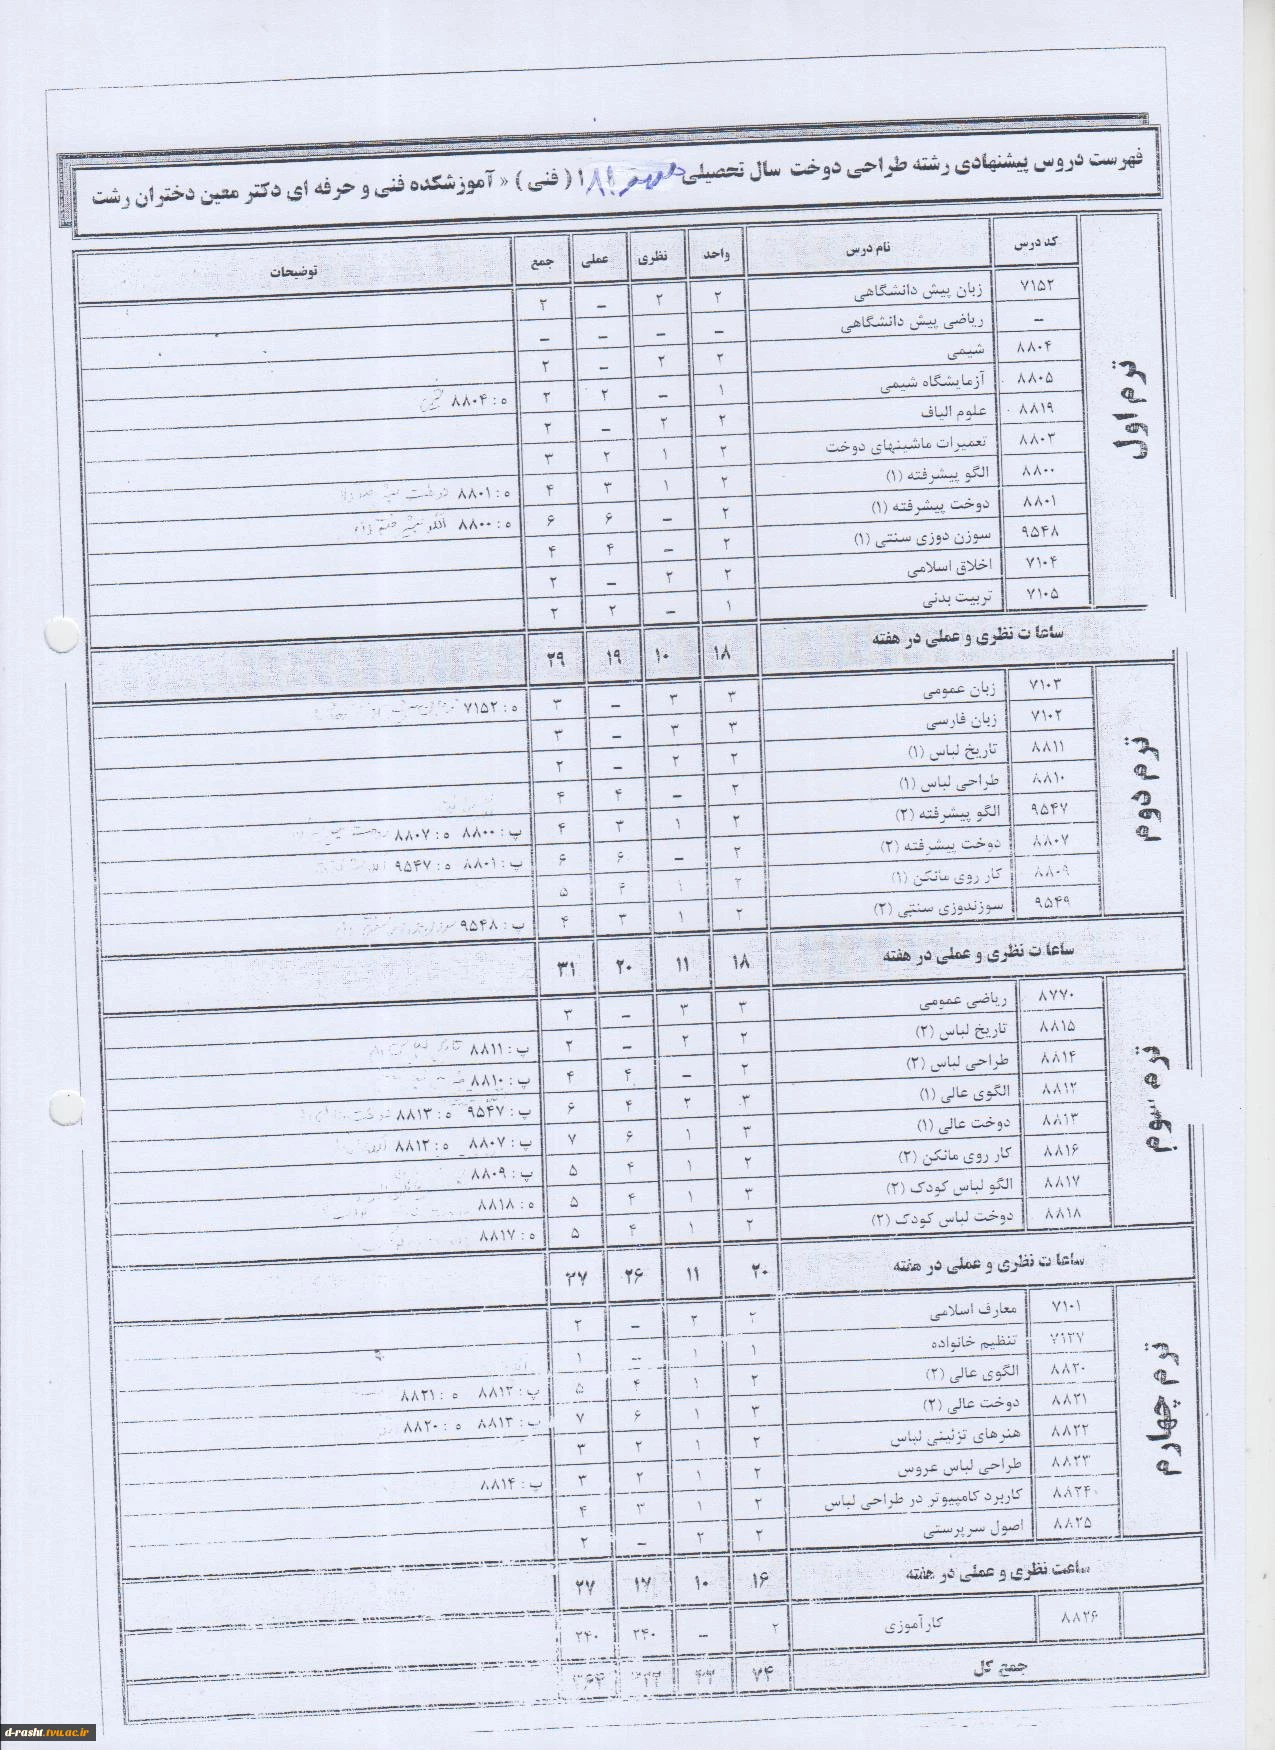 فهرست دروس پیشنهادی رشته طراحی دوخت سال تحصیلی ۱ ( فنی ) « آموزشکده فنی و حرفه ای دکتر معین دختران رشت
کد درس نام درس واحد نظری عملی جمع توضیحات
ترم اول
۷۱۵۲ زبان پیش دانشگاهی ۲ ۲ – ۲
– ریاضی پیش دانشگاهی – – – –
۸۸۰۴ شیمی ۲ ۲ – ۲
۸۸۰۵ آزمایشگاه شیمی ۱ – ۲ ۲ ه : ۸۸۰۴
۸۸۱۹ علوم الیاف ۲ ۲ – ۲
۸۸۰۳ تعمیرات ماشینهای دوخت ۲ ۱ ۲ ۳
۸۸۰۰ الگو پیشرفته (۱) ۲ ۱ ۳ ۴ ه : ۸۸۰۱
۸۸۰۱ دوخت پیشرفته (۱) ۲ – ۶ ۶ ه : ۸۸۰۰
۹۵۴۸ سوزن دوزی سنتی (۱) ۲ – ۴ ۴
۷۱۰۴ اخلاق اسلامی ۲ ۲ – ۲
۷۱۰۵ تربیت بدنی ۱ – ۲ ۲
ساعات نظری و عملی در هفته ۱۸ ۱۰ ۱۹ ۲۹
ترم دوم
۷۱۰۳ زبان عمومی ۳ ۳ – ۳ ه : ۷۱۵۲
۷۱۰۲ زبان فارسی ۳ ۳ – ۳
۸۸۱۱ تاریخ لباس (۱) ۲ ۲ – ۲
۸۸۱۰ طراحی لباس (۱) ۲ – ۴ ۴
۹۵۴۷ الگو پیشرفته (۲) ۲ ۱ ۳ ۴ پ : ۸۸۰۰ ه : ۸۸۰۷
۸۸۰۷ دوخت پیشرفته (۲) ۲ – ۶ ۶ پ : ۸۸۰۱ ه : ۹۵۴۷
۸۸۰۹ کار روی مانکن (۱) ۲ ۱ ۴ ۵
۹۵۴۹ سوزندوزی سنتی (۲) ۲ ۱ ۳ ۴ پ : ۹۵۴۸
ساعات نظری و عملی در هفته ۱۸ ۱۱ ۲۰ ۳۱
ترم سوم
۸۷۷۰ ریاضی عمومی ۳ ۳ – ۳
۸۸۱۵ تاریخ لباس (۲) ۲ ۲ – ۲ پ : ۸۸۱۱
۸۸۱۴ طراحی لباس (۲) ۲ – ۴ ۴ پ : ۸۸۱۰
۸۸۱۲ الگوی عالی (۱) ۳ ۲ ۴ ۶ پ : ۹۵۴۷ ه : ۸۸۱۳
۸۸۱۳ دوخت عالی (۱) ۳ ۱ ۶ ۷ پ : ۸۸۰۷ ه : ۸۸۱۲
۸۸۱۶ کار روی مانکن (۲) ۲ ۱ ۴ ۵ پ : ۸۸۰۹
۸۸۱۷ الگو لباس کودک (۲) ۳ ۱ ۴ ۵ ه : ۸۸۱۸
۸۸۱۸ دوخت لباس کودک (۲) ۲ ۱ ۴ ۵ ه : ۸۸۱۷
ساعات نظری و عملی در هفته ۲۰ ۱۱ ۲۶ ۳۷
ترم چهارم
۷۱۰۱ معارف اسلامی ۲ ۲ – ۲
۷۱۲۷ تنظیم خانواده ۱ ۱ – ۱
۸۸۲۰ الگوی عالی (۲) ۲ ۱ ۴ ۵ پ : ۸۸۱۲ ه : ۸۸۲۱
۸۸۲۱ دوخت عالی (۲) ۳ ۱ ۶ ۷ پ : ۸۸۱۳ ه : ۸۸۲۰
۸۸۲۲ هنرهای تزئینی لباس ۲ ۱ ۲ ۳
۸۸۲۳ طراحی لباس عروس ۲ ۱ ۲ ۳ پ : ۸۸۱۴
۸۸۲۴ کاربرد کامپیوتر در طراحی لباس ۲ ۱ ۳ ۴
۸۸۲۵ اصول سرپرستی ۲ ۲ – ۲
ساعت نظری و عملی در هفته ۱۶ ۱۰ ۱۷ ۲۷
۸۸۲۶ کارآموزی ۲ – ۲۴۰ ۲۴۰
جمع کل ۷۴
d-rasht.tvu.ac.ir